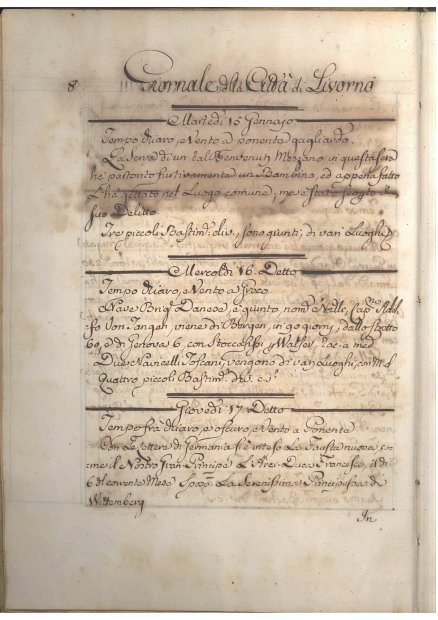 8 Giornale della Città di Livorno
Martedì 15 Gennajo
Tempo chiaro, e Vento a ponente gagliardo.
La Serva di un tal Benvenuti Mezzano in questa sera
hà partorito furtivamente un Bambino, ed appena fatto
l'hà gittato nel Luogo comune, ma è stato
suo Delitto.
Tre piccoli Bastimti div. sono giunti di vari Luoghi
Mercoldì 16. Detto
Tempo chiaro, Vento a Greco
Nave Danese, è giunto, nome Cap.no
Von Tangen, viene di Bergen, in 90 giorni, dallo stretto
60, e di Genova 6, con Stoccafissi,
Due Navicelli Toscani, vengono di vari Luoghi, con
Quattro piccoli Bastimti
Giovedì 17. Detto
Tempo frà chiaro, e oscuro, e Vento a Ponente
Con Le Lettere di Germania si è inteso La Fausta nuova, co
me il Nostro Gran Principe L'Arci-Duca Francesco, il dì
6 del corrente Mese La Serenissima Principessa di
Wittemberg
In